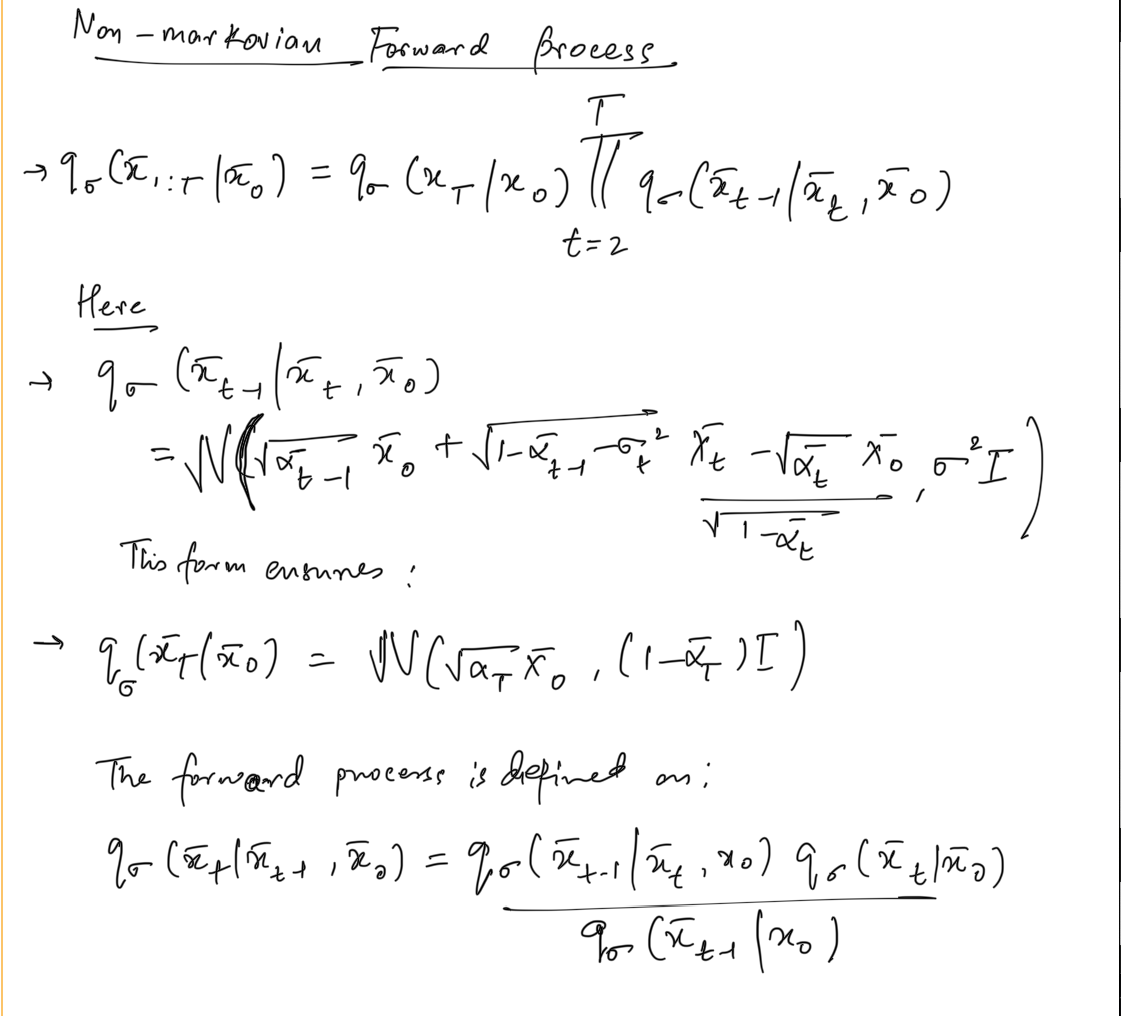 Non-markovian Forward Process
→ q_σ(x̄_{1:T}|x̄_0) = q_σ(x_T/x_0) ∏_{t=2}^{T} q_σ(x̄_{t-1}/x̄_t, x̄_0)
Here
→ q_σ(x̄_{t-1}|x̄_t, x̄_0)
= N(√(ᾱ_{t-1}) x̄_0 + √(1-ᾱ_{t-1}-σ_t²) (x̄_t - √(ᾱ_t) x̄_0)/√(1-ᾱ_t), σ²I)
This form ensures :
→ q_σ(x̄_T|x̄_0) = N(√α_T x̄_0, (1-ᾱ_T)I)
The forward process is defined as;
q_σ(x̄_t|x̄_{t-1}, x̄_0) = q_σ(x̄_{t-1}|x̄_t, x_0) q_σ(x̄_t|x̄_0)
q_σ(x̄_{t-1}|x_0)